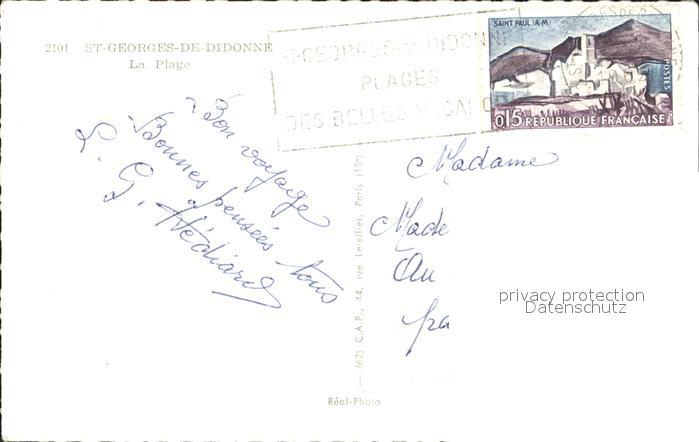 2101 ST-GEORGES-DE-DIDONNE
La Plage
ST-GEORGES-DE-DIDONNE
PLAGES
DES BELLES VACANCES
SAINT PAUL (A-M)
POSTES
0,15 RÉPUBLIQUE FRANÇAISE
Bon voyage
Bonnes pensées tous
L. G. Hédiard
Madame
Made
Au
fra
privacy protection
Datenschutz
(62) C.A.P., 44, rue Letellier, Paris (15e)
Réal-Photo